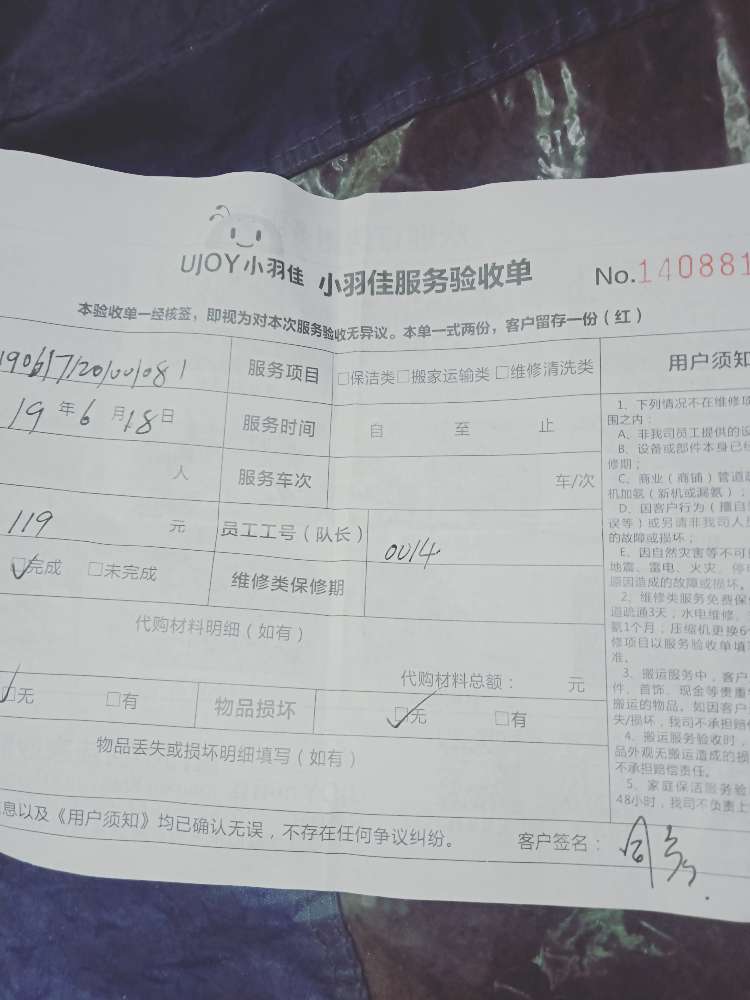 UJOY小羽佳 小羽佳服务验收单 No.140881
本验收单一经核签，即视为对本次服务验收无异议。本单一式两份，客户留存一份（红）
服务项目 □保洁类□搬家运输类□维修清洗类
19年6月18日 服务时间 自 至 止
人 服务车次 车/次
119 元 员工工号（队长） 0014
□完成 □未完成 维修类保修期
代购材料明细（如有）
代购材料总额： 元
□无 □有 物品损坏 □无 □有
物品丢失或损坏明细填写（如有）
息以及《用户须知》均已确认无误，不存在任何争议纠纷。 客户签名：
用户须知
1、下列情况不在维修
围之内：
A、非我司员工提供的设
B、设备或部件本身已
修期；
C、商业（商铺）管道
机加氨（新机或漏氨）；
D、因客户行为（擅自
误等）或另请非我司人
的故障或损坏；
E、因自然灾害等不可
地震、雷电、火灾、停
原因造成的故障或损坏。
2、维修类服务免费保
道疏通3天；水电维修、
氨1个月；压缩机更换6
修项目以服务验收单填
准。
3、搬运服务中，客户
件、首饰、现金等贵重
搬运的物品。如因客户
失/损坏，我司不承担赔
4、搬运服务验收时，
品外观无搬运造成的损
不承担赔偿责任。
5、家庭保洁服务验
48小时，我司不负责上